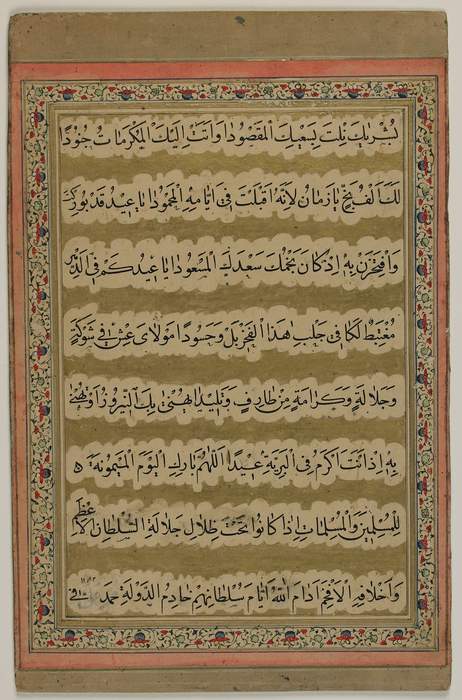 بشريك نلت بسعيك المقصودا واتت اليك المكرمات جنودا
لك الفخر يا زمان لانه اقبلت في ايامه المحمودا يا عيد قد بوركت
وافتخرن به اذ كان نجمك سعدك المسعودا يا عيدكم في الدهر
مغتبط لكا في جلب هذا الفخر بل وحسودا مولاي عش في شوكة
وجلالة وكرامة من طارف وتليدا يهنئ بك النيروز او تهنئ
به اذ انت اكرم في البرية عيدا اللهم بارك اليوم الميمونة
للمسلمين والمسلمات اذا كانوا تحت ظلال جلالة السلطان الاعظم
واخلافه الافخم ادام الله ايام سلطانهم خادم الدولة حمد